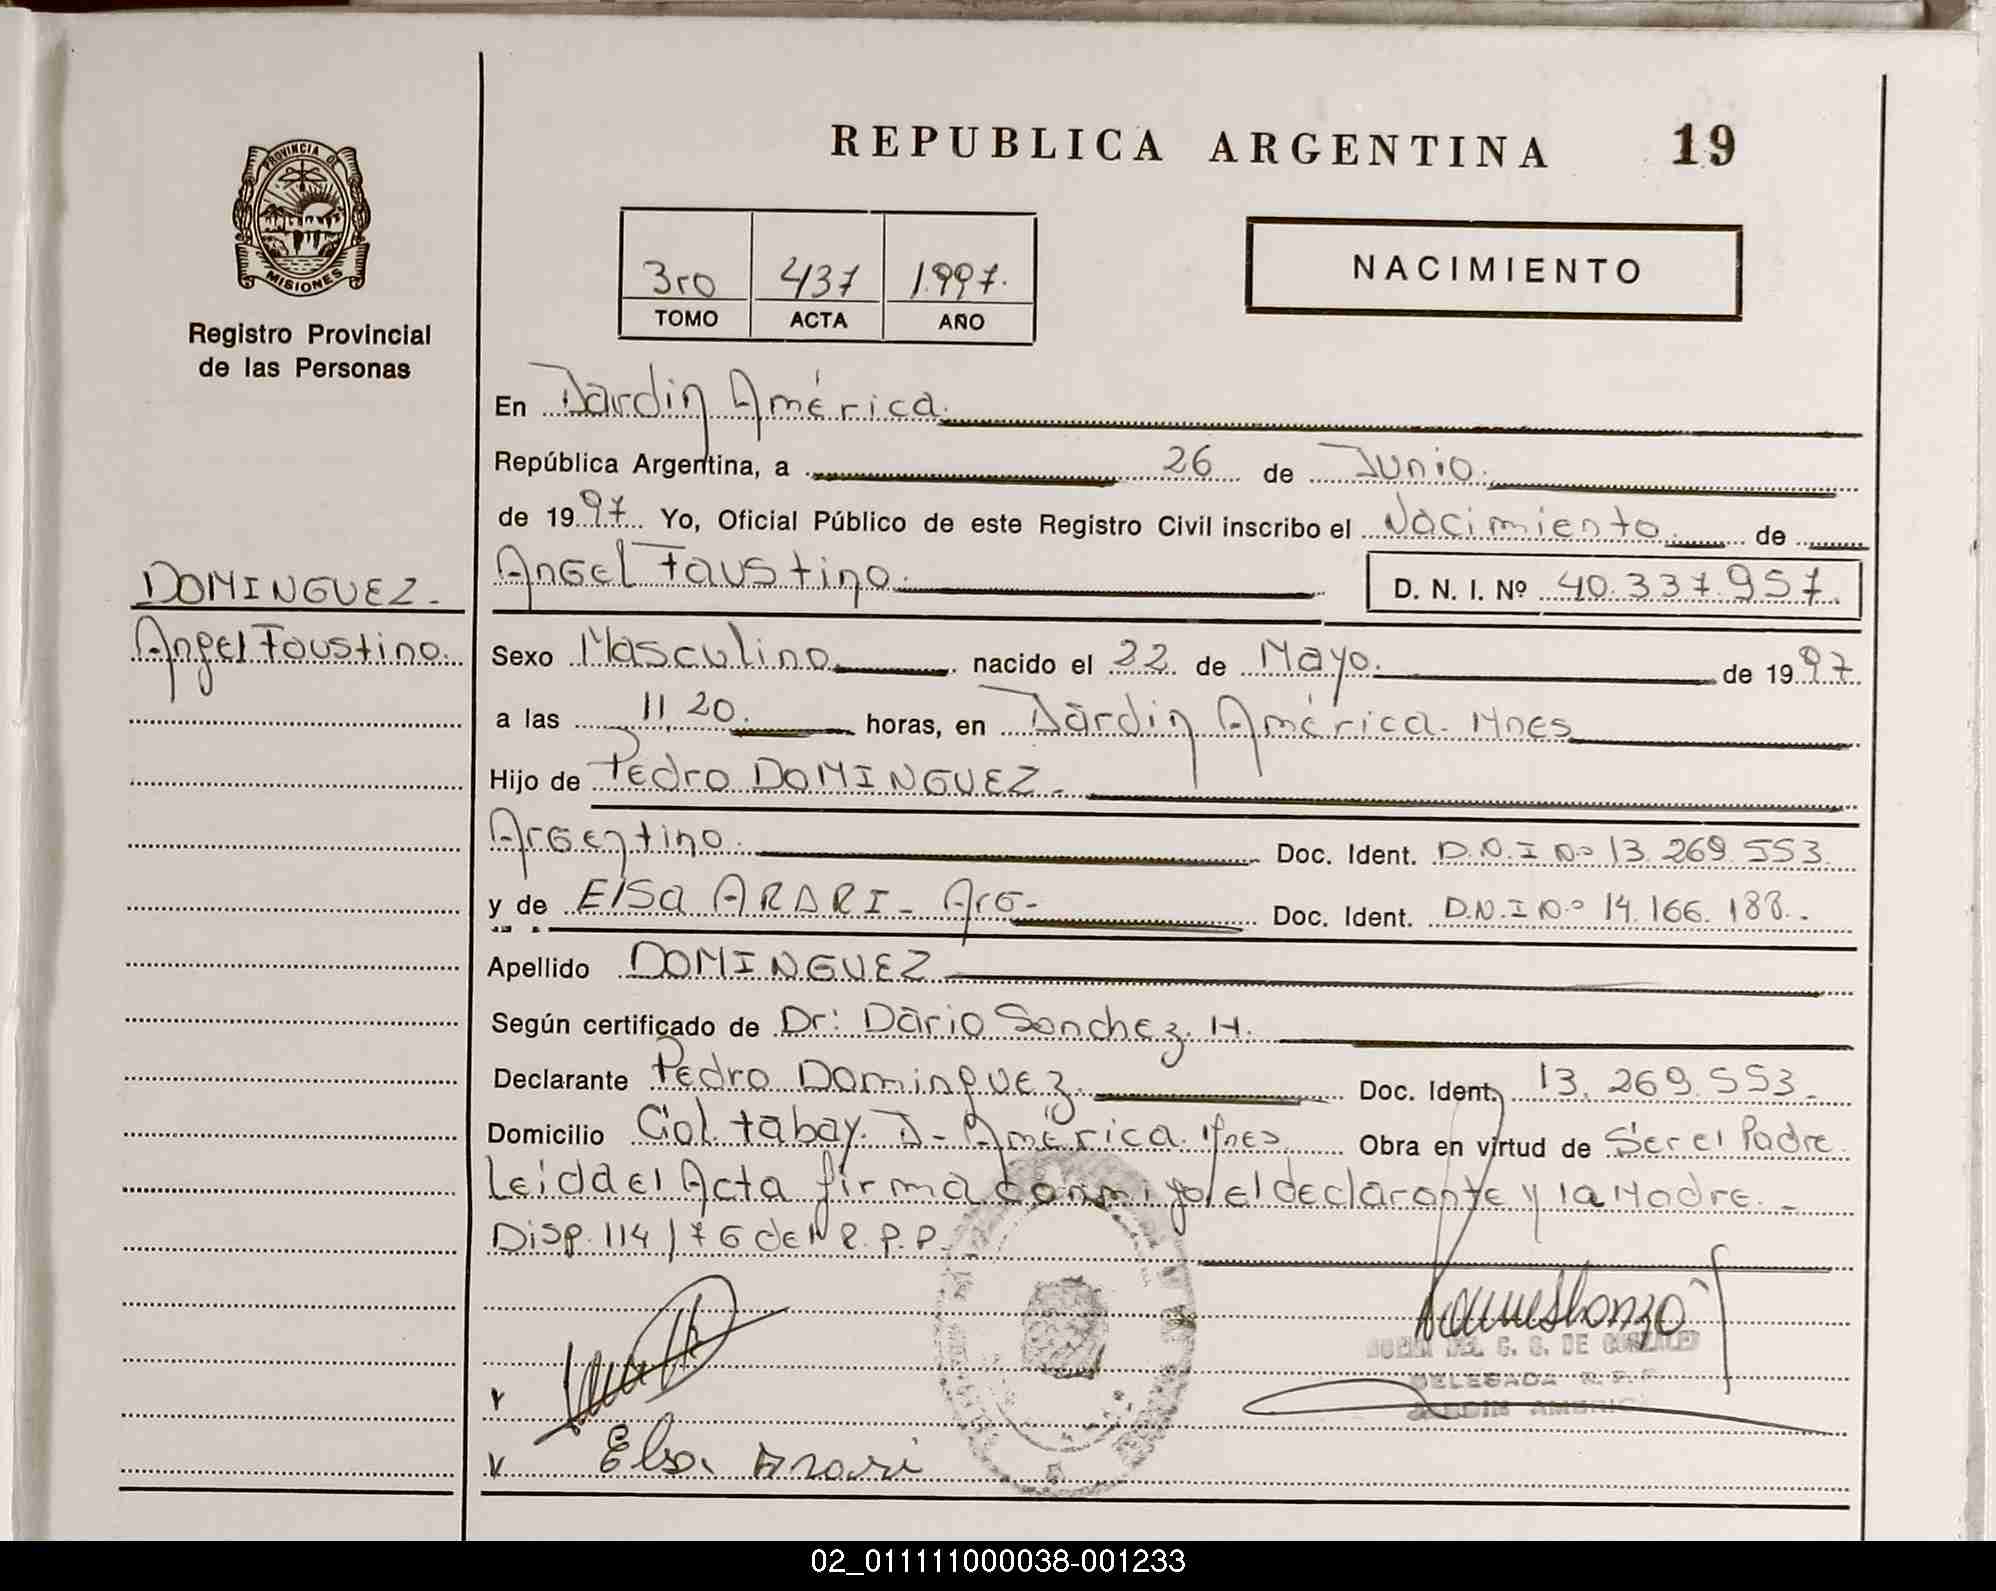 REPUBLICA ARGENTINA 19
PROVINCIA DE
MISIONES
Registro Provincial
de las Personas
3ro 437 1.997.
TOMO ACTA AÑO
NACIMIENTO
En Jardin América.
República Argentina, a 26 de Junio.
de 1997. Yo, Oficial Público de este Registro Civil inscribo el Nacimiento. de
Angel Faustino. D. N. I. Nº 40.337.957.
DOMINGUEZ.-
Angel Faustino.
Sexo Masculino nacido el 22 de Mayo. de 1997
a las 11,20. horas, en Jardin América. Mnes
Hijo de Pedro DOMINGUEZ.-
Argentino. Doc. Ident. D.N.I Nº 13.269.553.
y de Elsa ARARI - Arg.- Doc. Ident. D.N.I Nº 14.166.188.-
Apellido DOMINGUEZ
Según certificado de Dr: Dario Sanchez. H.
Declarante Pedro Dominguez. Doc. Ident. 13.269.553.-
Domicilio Col. tabay. J- América. Mnes. Obra en virtud de Ser el Padre.
Leida el Acta firma conmigo el declarante y la Madre.-
Disp. 114/76 del R.P.P.
DE GONZALEZ
DELEGADA R.P.P.
JARDIN AMERICA
Elsa Arari
02_011111000038-001233